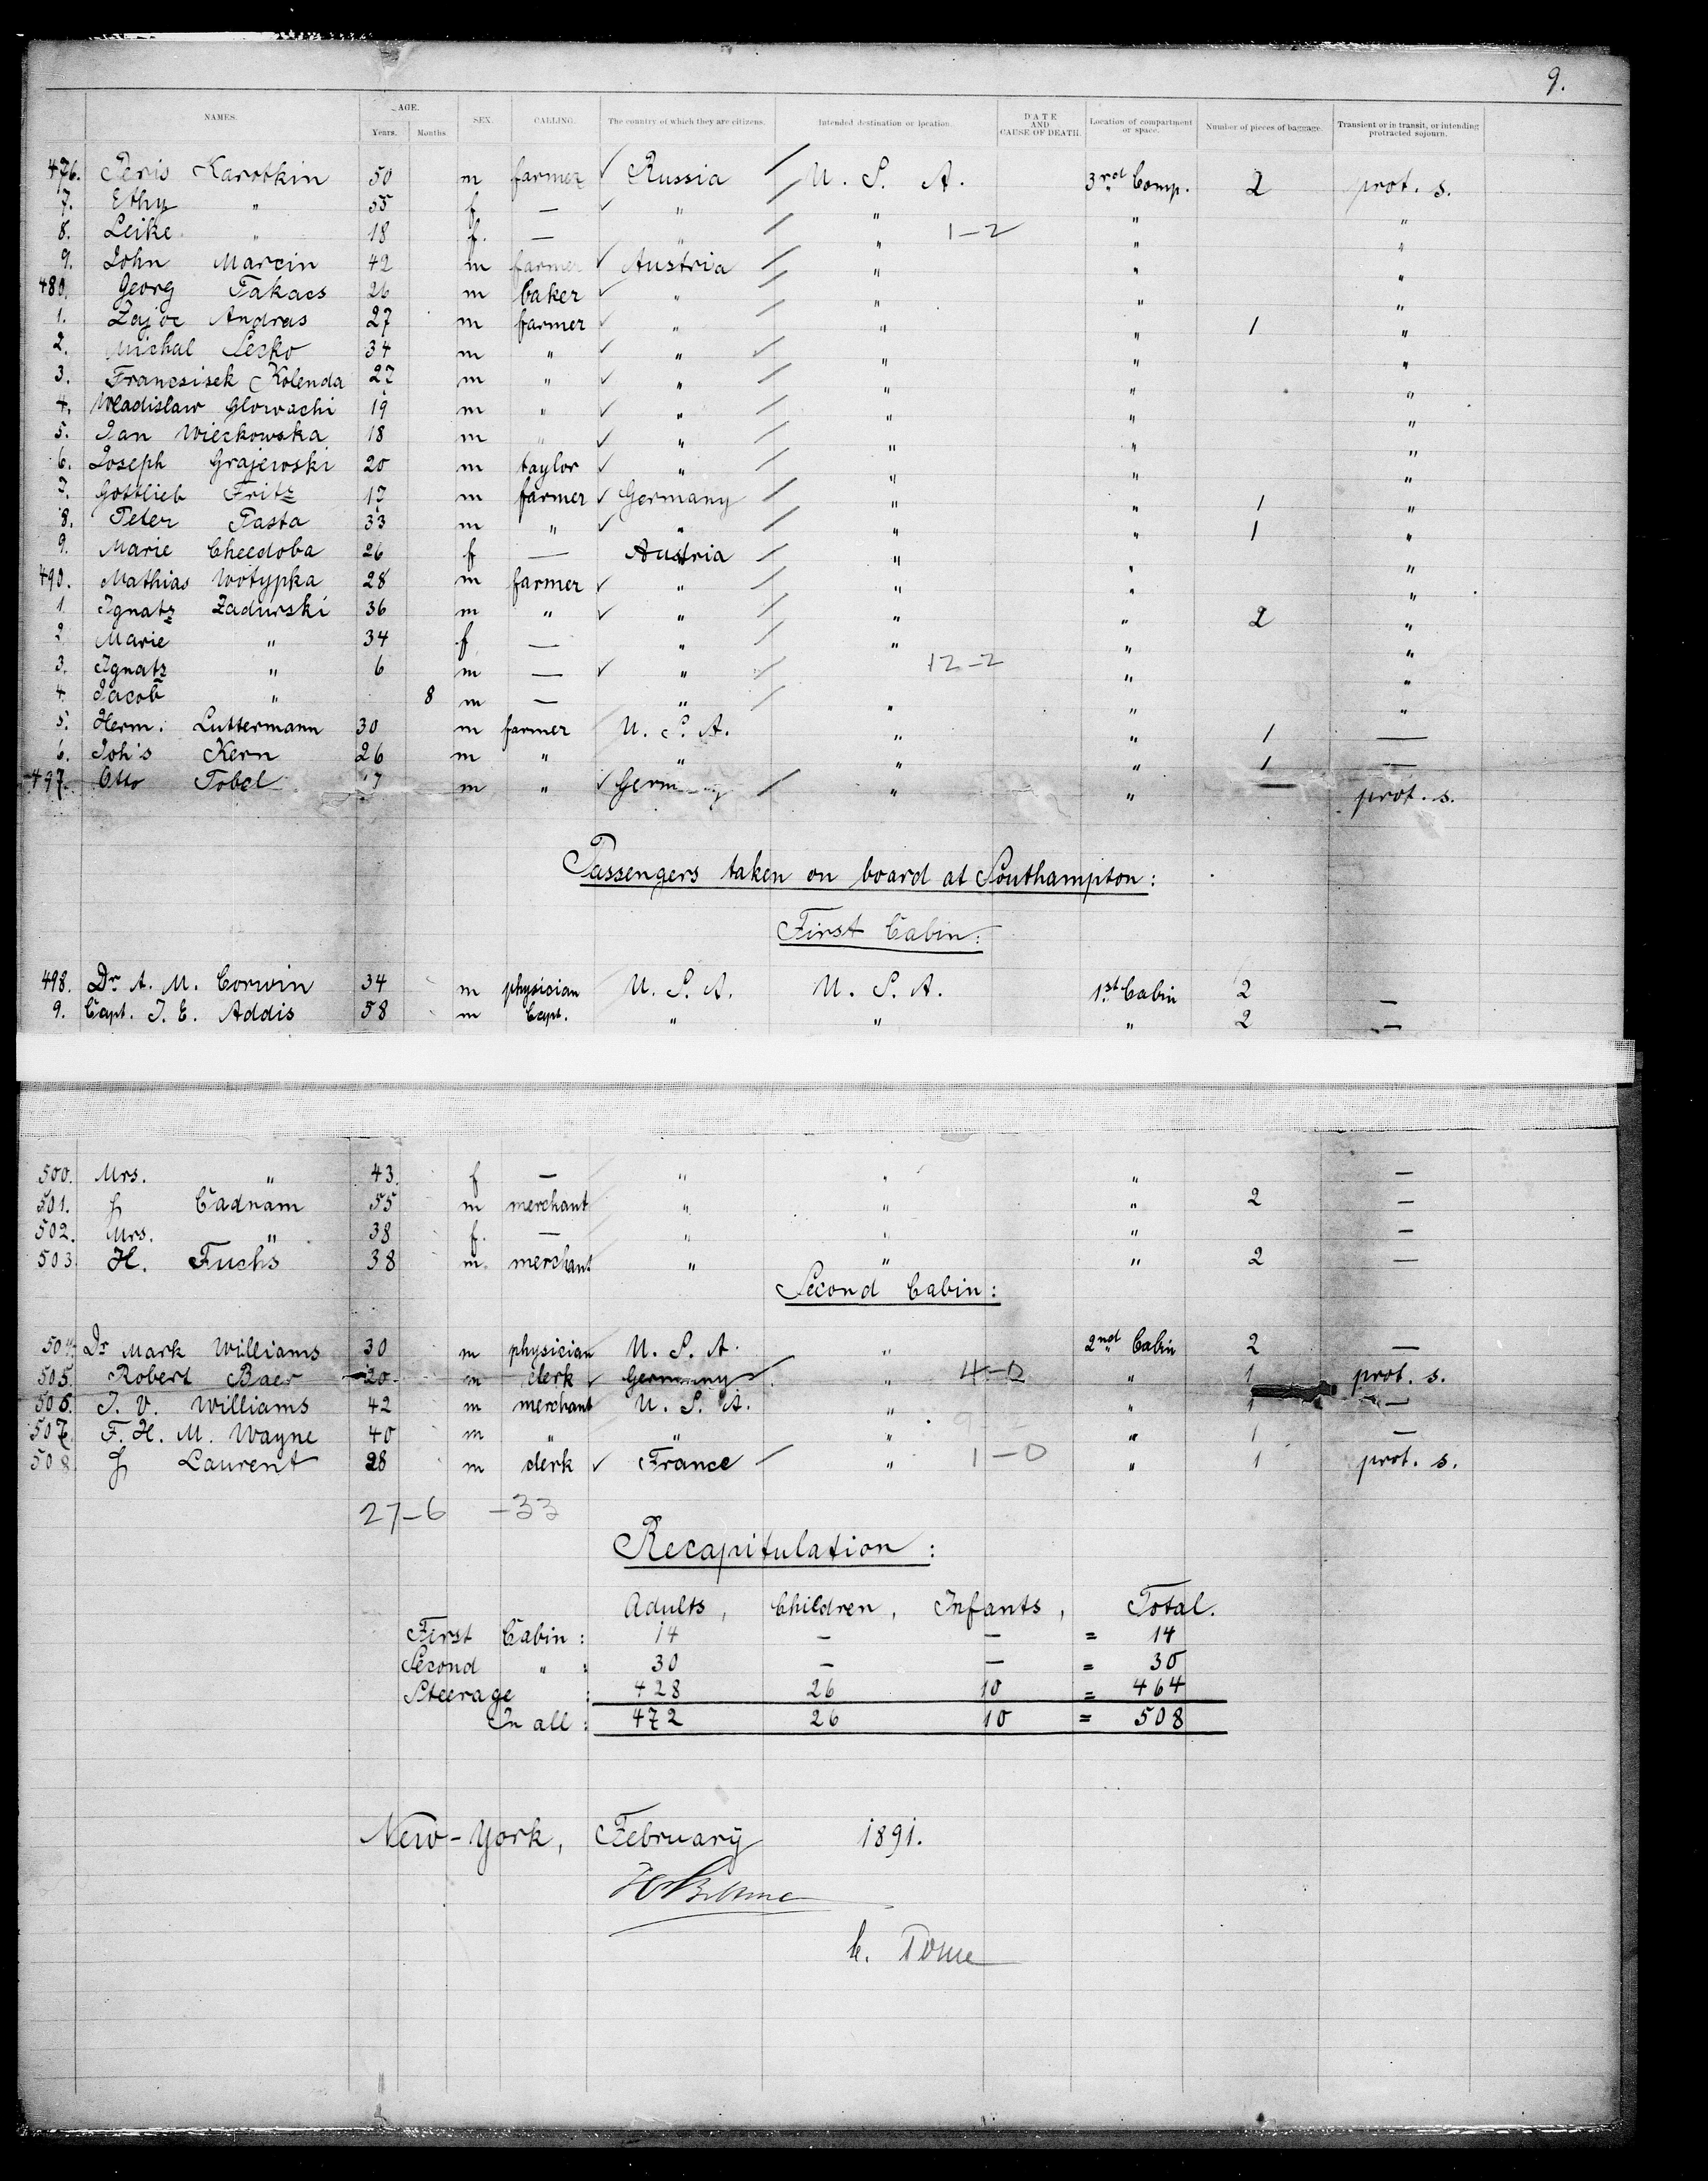 9.
NAMES. AGE. Years. Months. SEX. CALLING. The country of which they are citizens. Intended destination or location. DATE AND CAUSE OF DEATH. Location of compartment or space. Number of pieces of baggage. Transient or in transit, or intending protracted sojourn.
476. Peris Karotkin 50 m farmer ✓ Russia / U. S. A. 3rd Comp. 2 prot. s.
7. Ethy " 55 f — ✓ " / " " "
8. Leike " 18 f. — " / " 1-2 " "
9. John Marcin 42 m farmer ✓ Austria / " " "
480. Georg Takacs 26 m baker ✓ " / " " "
1. Zajoc Andras 27 m farmer ✓ " / " " 1 "
2. Michal Secko 34 m " ✓ " / " " "
3. Francsisek Kolenda 27 m " ✓ " / " " "
4. Wladislaw Glowachi 19 m " ✓ " / " " "
5. Jan Wieckowska 18 m " ✓ " / " " "
6. Joseph Grajewski 20 m taylor ✓ " / " " "
7. Gottlieb Fritz 17 m farmer ✓ Germany / " " 1 "
8. Peter Pasta 33 m " ✓ " / " " 1 "
9. Marie Checdoba 26 f — Austria / " " "
490. Mathias Wotypka 28 m farmer ✓ " / " " "
1. Ignatz Zadurski 36 m " ✓ " / " " 2 "
2 Marie " 34 f — " / " " "
3. Ignatz " 6 m — ✓ " / 12-2 " "
4. Jacob " 8 m — " / " " "
5. Herm. Luttermann 30 m farmer U. S. A. " " 1 —
6. Joh's Kern 26 m " " " " 1 —
497. Otto Tobel 17 m " ✓ Germany / " " prot. s.
Passengers taken on board at Southampton:
First Cabin:
498. Dr. A. M. Corwin 34 m physician U. S. A. U. S. A. 1st Cabin 2 —
9. Capt. J. E. Addis 58 m Capt. " " " 2 —
500. Mrs. " 43. f — " " " —
501. Cadnam 55 m merchant " " " 2 —
502. Mrs. " 38 f. — " " " —
503 H. Fuchs 38 m. merchant " " " 2 —
Second Cabin:
504. Dr Mark Williams 30 m physician U. S. A. " 2nd Cabin 2 —
505. Robert Baer 20 m clerk ✓ Germany / " 4-0 " 1 prot. s.
506. J. V. Williams 42 m merchant U. S. A. " " 1 —
507. F. H. M. Wayne 40 m " " " " 1 —
508. Laurent 28 m clerk ✓ France / " 1-0 " 1 prot. s.
27-6 -33
Recapitulation:
Adults, Children, Infants, Total.
First Cabin: 14 — — = 14
Second " : 30 — — = 30
Steerage : 428 26 10 = 464
In all: 472 26 10 = 508
New-York, February 1891.